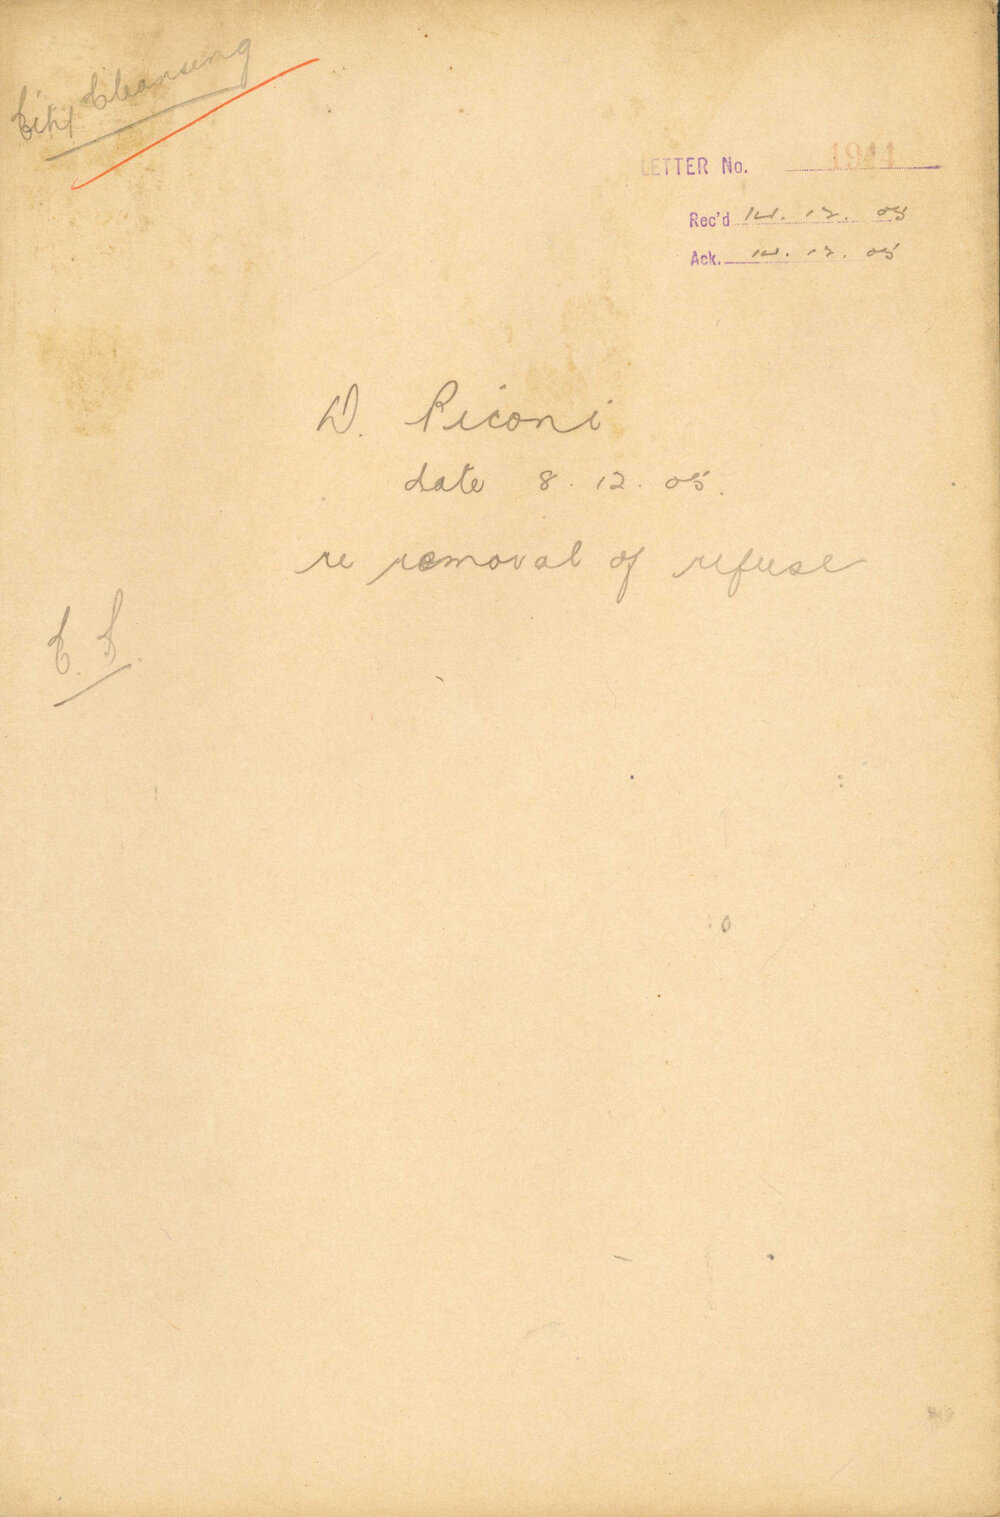 City Cleansing
LETTER No. 1944
Rec'd 14. 12. 05
Ack. 14. 12. 05
D. Piconi
date 8. 12. 05.
re removal of refuse